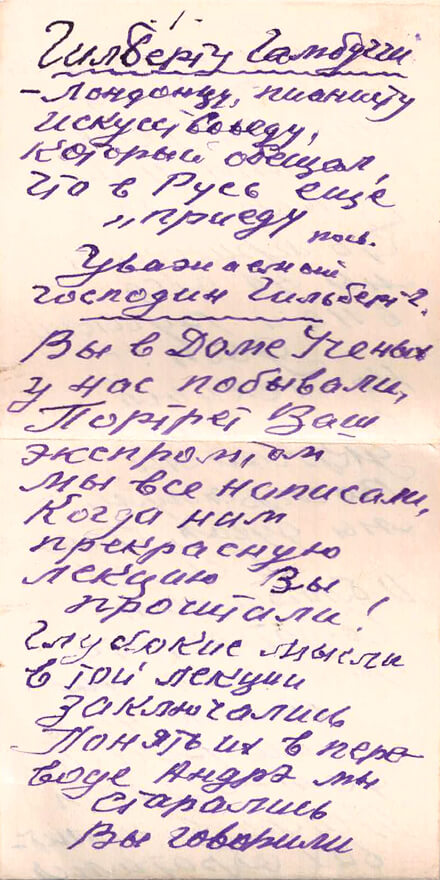 Гилберту Гамбуччи
– Лондонцу, пианисту
искусствоведу,
который обещал,
что в Русь еще
„приеду
посв.
Уважаемый
господин Гильберт Г.
Вы в Доме Ученых
у нас побывали,
Портрет Ваш
экспромтом
мы все написали,
Когда нам
прекрасную
лекцию Вы
прочитали!
Глубокие мысли
в той лекции
заключались
Понять их в пере-
воде Андрэ мы
старались
Вы говорили